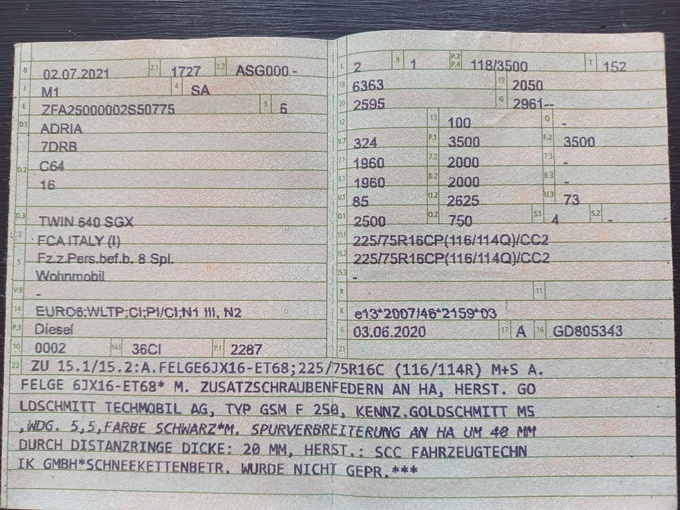 B 02.07.2021 2.1 1727 2.2 ASG000 -
J M1 4 SA
E ZFA25000002S50775 3 6
D.1 ADRIA
7DRB
D.2 C64
16
D.3 TWIN 640 SGX
2 FCA ITALY (I)
5 Fz.z.Pers.bef.b. 8 Spl.
Wohnmobil
V.9 -
14 EURO6;WLTP;CI;PI/CI;N1 III, N2
P.3 Diesel
10 0002 14.1 36CI P.1 2287
L 2 9 1 P.2 P.4 118/3500 T 152
18 6363 19 2050
20 2595 G 2961--
12 13 100 Q -
V.7 324 F.1 3500 F.2 3500
7.1 1960 7.2 2000 7.3 -
8.1 1960 8.2 2000 8.3 -
U.1 85 U.2 2625 U.3 73
O.1 2500 O.2 750 S.1 4 S.2 -
15.1 225/75R16CP(116/114Q)/CC2
15.2 225/75R16CP(116/114Q)/CC2
15.3 -
R 11
K e13*2007/46*2159*03
6 03.06.2020 17 A 16 GD805343
21
22 ZU 15.1/15.2:A.FELGE6JX16-ET68;225/75R16C (116/114R) M+S A.
FELGE 6JX16-ET68* M. ZUSATZSCHRAUBENFEDERN AN HA, HERST. GO
LDSCHMITT TECHMOBIL AG, TYP GSM F 250, KENNZ.GOLDSCHMITT MS
,WDG. 5,5,FARBE SCHWARZ*M. SPURVERBREITERUNG AN HA UM 40 MM
DURCH DISTANZRINGE DICKE: 20 MM, HERST.: SCC FAHRZEUGTECHN
IK GMBH*SCHNEEKETTENBETR. WURDE NICHT GEPR.***